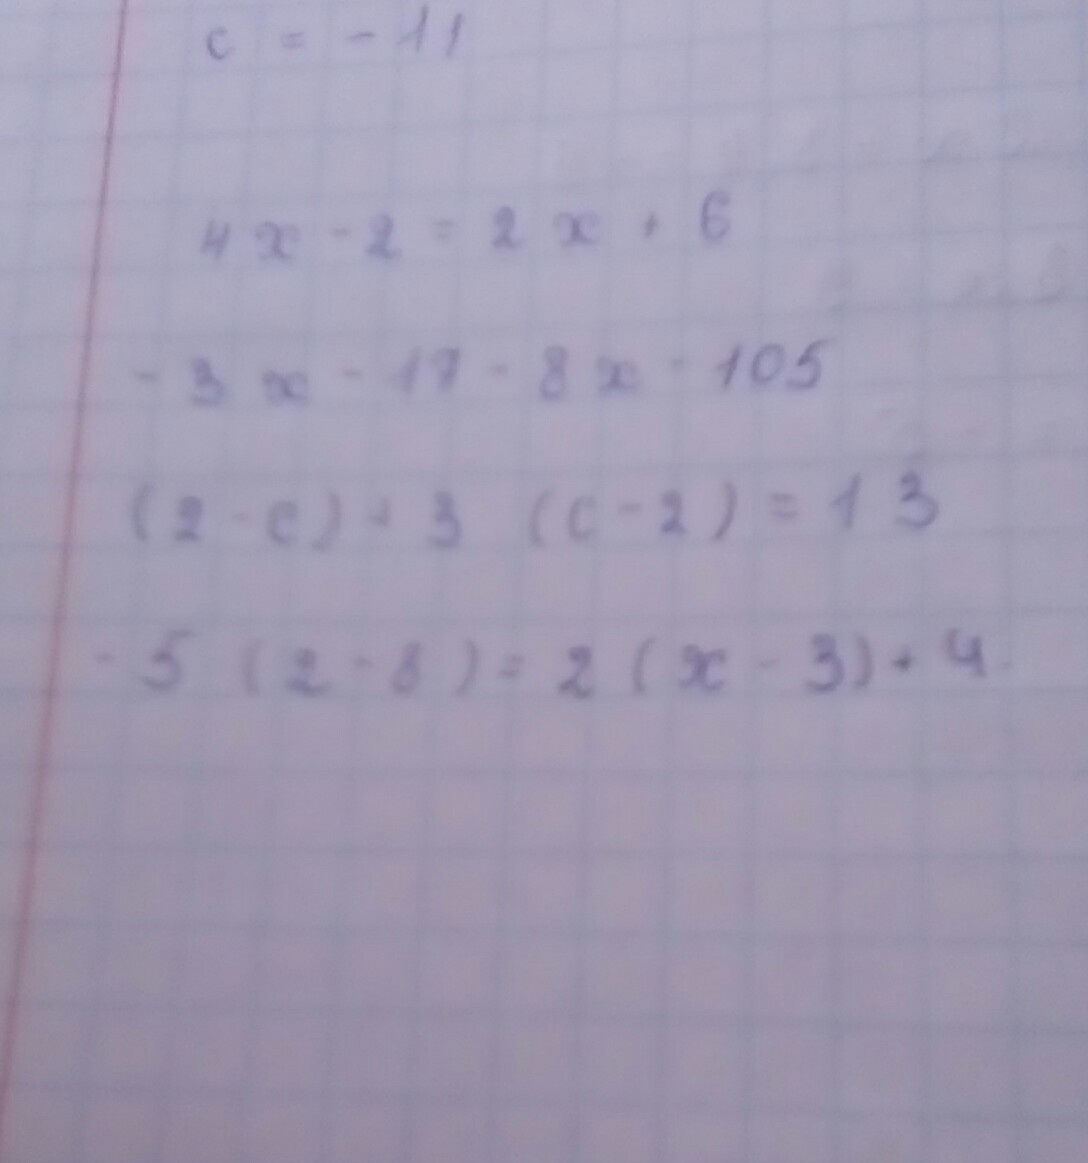 c = -11
4x - 2 = 2x + 6
- 3x - 17 - 8x - 105
(2 - c) + 3 (c - 2) = 13
- 5 (2 - 8) = 2 (x - 3) + 4